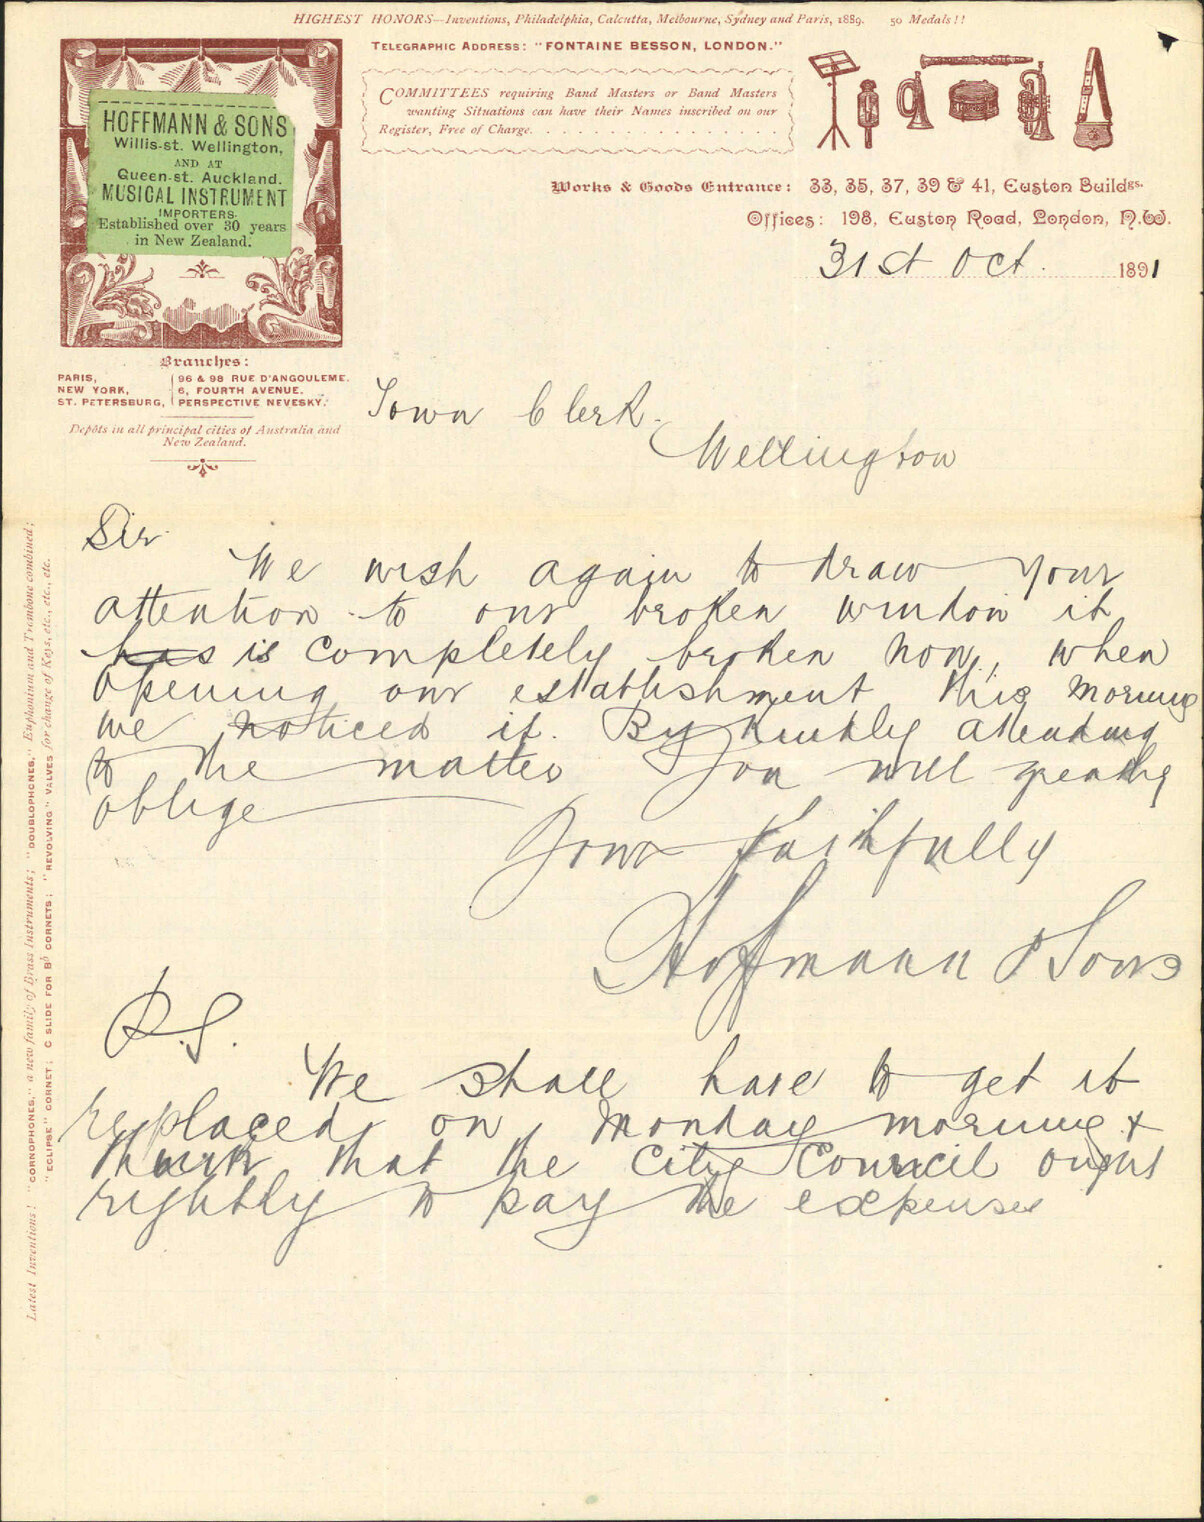 HIGHEST HONORS—Inventions, Philadelphia, Calcutta, Melbourne, Sydney and Paris, 1889. 50 Medals!!
TELEGRAPHIC ADDRESS: "FONTAINE BESSON, LONDON."
COMMITTEES requiring Band Masters or Band Masters
wanting Situations can have their Names inscribed on our
Register, Free of Charge.
HOFFMANN & SONS
Willis-st. Wellington,
AND AT
Queen-st. Auckland.
MUSICAL INSTRUMENT
IMPORTERS.
Established over 30 years
in New Zealand.
Works & Goods Entrance: 33, 35, 37, 39 & 41, Euston Buildgs.
Offices: 198, Euston Road, London, N.W.
31st Oct. 1891
Branches:
PARIS, 96 & 98 RUE D'ANGOULEME.
NEW YORK, 6, FOURTH AVENUE.
ST. PETERSBURG, PERSPECTIVE NEVESKY.
Depôts in all principal cities of Australia and
New Zealand.
Town Clerk.
Wellington
Sir
We wish again to draw your
attention to our broken window it
has is completely broken now, when
opening our establishment this morning
we noticed it. By kindly attending
to the matter you will greatly
oblige
Yours faithfully
Hoffmann & Sons
P.S.
We shall have to get it
replaced on Monday morning +
think that the City Council ought
rightly to pay the expenses
Latest Inventions! "CORNOPHONES," a new family of Brass Instruments; "DOUBLOPHONES," Euphonium and Trombone combined;
"ECLIPSE" CORNET; C SLIDE FOR Bb CORNETS; "REVOLVING" VALVES for change of Keys, etc., etc., etc.